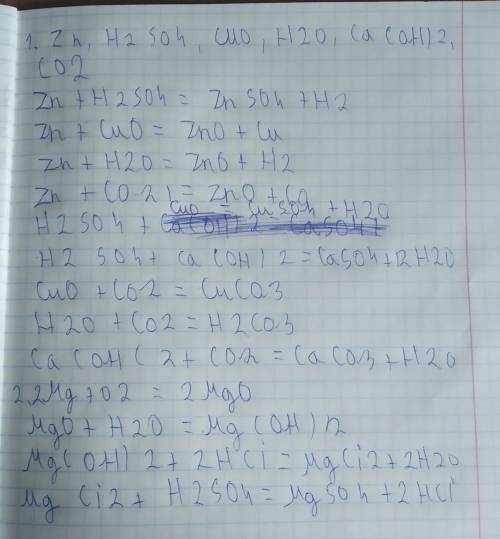 1. Zn, H2SO4, CuO, H2O, Ca(OH)2,
CO2
Zn + H2SO4 = ZnSO4 + H2
Zn + CuO = ZnO + Cu
Zn + H2O = ZnO + H2
Zn + CO2 = ZnO + CO
H2SO4 + CuO = CuSO4 + H2O
H2SO4 + Ca(OH)2 = CaSO4 + 2H2O
CuO + CO2 = CuCO3
H2O + CO2 = H2CO3
Ca(OH(2 + CO2 = CaCO3 + H2O
2. 2Mg + O2 = 2MgO
MgO + H2O = Mg(OH)2
Mg(OH)2 + 2HCi = MgCi2 + 2H2O
MgCi2 + H2SO4 = MgSO4 + 2HCi